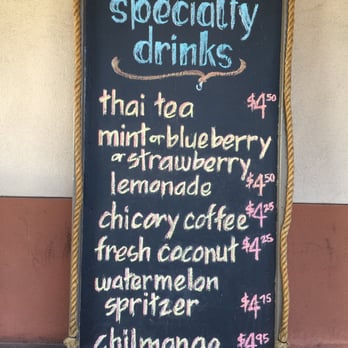 specialty
drinks
thai tea $4.50
mint or blueberry
or strawberry
lemonade $4.50
chicory coffee $4.25
fresh coconut $4.25
watermelon
spritzer $4.75
chilmango $4.95